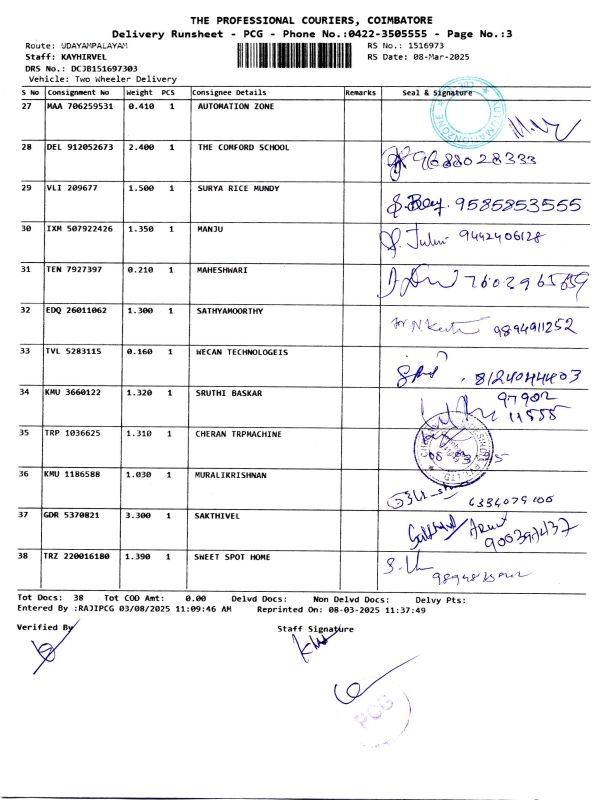 THE PROFESSIONAL COURIERS, COIMBATORE
Delivery Runsheet - PCG - Phone No.:0422-3505555 - Page No.:3
Route: UDAYAMPALAYAM RS No.: 1516973
Staff: KAYHIRVEL RS Date: 08-Mar-2025
DRS No.: DCJB151697303
Vehicle: Two Wheeler Delivery
S No Consignment No Weight PCS Consignee Details Remarks Seal & Signature
27 MAA 706259531 0.410 1 AUTOMATION ZONE
AUTOMATIONZONE
28 DEL 912052673 2.400 1 THE COMFORD SCHOOL 9688028333
29 VLI 209677 1.500 1 SURYA RICE MUNDY 9585853555
30 IXM 507922426 1.350 1 MANJU 9442406128
31 TEN 7927397 0.210 1 MAHESHWARI
32 EDQ 26011062 1.300 1 SATHYAMOORTHY 9894911252
33 TVL 5283115 0.160 1 WECAN TECHNOLOGEIS 8124044403
34 KMU 3660122 1.320 1 SRUTHI BASKAR 97902
11555
35 TRP 1036625 1.310 1 CHERAN TRPMACHINE
36 KMU 1186588 1.030 1 MURALIKRISHNAN
37 GDR 5370821 3.300 1 SAKTHIVEL Sakthivel
38 TRZ 220016180 1.390 1 SWEET SPOT HOME
Tot Docs: 38 Tot COD Amt: 0.00 Delvd Docs: Non Delvd Docs: Delvy Pts:
Entered By :RAJIPCG 03/08/2025 11:09:46 AM Reprinted On: 08-03-2025 11:37:49
Verified By Staff Signature
PCG